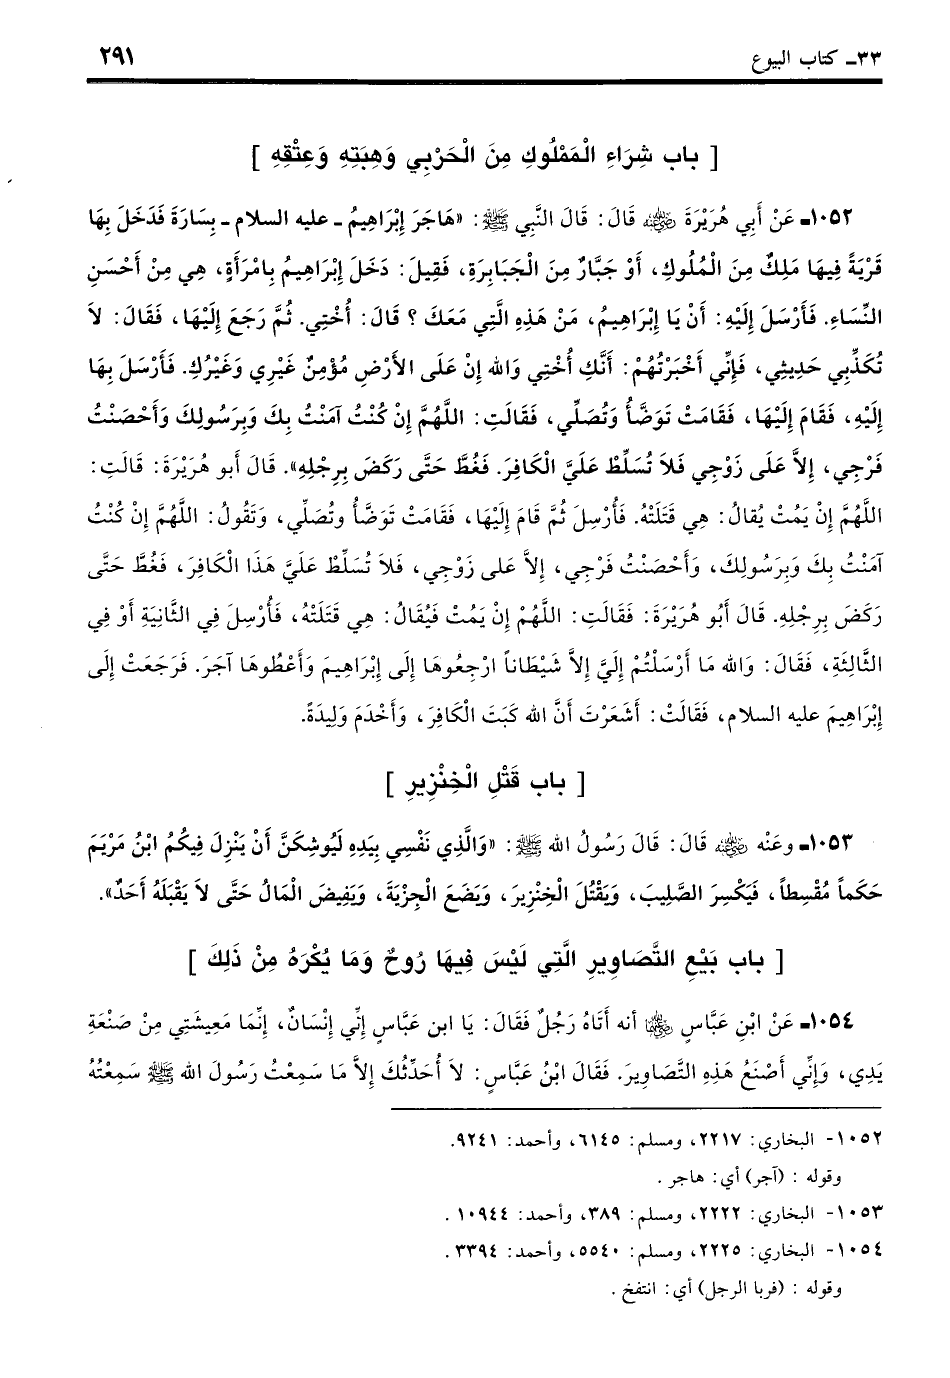 ٣٣ـ كتاب البيوع ٢٩١
[ باب شِرَاءِ الْمَمْلُوكِ مِنَ الْحَرْبِي وَهِبَتِهِ وَعِتْقِهِ ]
١٠٥٢ـ عَنْ أَبِي هُرَيْرَةَ رضي الله عنه قَالَ: قَالَ النَّبِي ﷺ: «هَاجَرَ إِبْرَاهِيمُ ـ عليه السلام ـ بِسَارَةَ فَدَخَلَ بِهَا
قَرْيَةً فِيهَا مَلِكٌ مِنَ الْمُلُوكِ، أَوْ جَبَّارٌ مِنَ الْجَبَابِرَةِ، فَقِيلَ: دَخَلَ إِبْرَاهِيمُ بِامْرَأَةٍ، هِي مِنْ أَحْسَنِ
النِّسَاءِ. فَأَرْسَلَ إِلَيْهِ: أَنْ يَا إِبْرَاهِيمُ، مَنْ هَذِهِ الَّتِي مَعَكَ ؟ قَالَ: أُخْتِي. ثُمَّ رَجَعَ إِلَيْهَا، فَقَالَ: لاَ
تُكَذِّبِي حَدِيثِي، فَإِنِّي أَخْبَرْتُهُمْ: أَنَّكِ أُخْتِي وَالله إِنْ عَلَى الأَرْضِ مُؤْمِنٌ غَيْرِي وَغَيْرُكِ. فَأَرْسَلَ بِهَا
إِلَيْهِ، فَقَامَ إِلَيْهَا، فَقَامَتْ تَوَضَّأُ وَتُصَلِّي، فَقَالَتِ: اللَّهُمَّ إِنْ كُنْتُ آمَنْتُ بِكَ وَبِرَسُولِكَ وَأَحْصَنْتُ
فَرْجِي، إِلاَّ عَلَى زَوْجِي فَلاَ تُسَلِّطْ عَلَيَّ الْكَافِرَ. فَغُطَّ حَتَّى رَكَضَ بِرِجْلِهِ». قَالَ أَبو هُرَيْرَةَ: قَالَتِ:
اللَّهُمَّ إِنْ يَمُتْ يُقالُ: هِي قَتَلَتْهُ. فَأُرْسِلَ ثُمَّ قَامَ إِلَيْهَا، فَقَامَتْ تَوَضَّأُ وتُصَلِّي، وَتَقُولُ: اللَّهُمَّ إِنْ كُنْتُ
آمَنْتُ بِكَ وَبِرَسُولِكَ، وَأَحْصَنْتُ فَرْجِي، إِلاَّ عَلى زَوْجِي، فَلاَ تُسَلِّطْ عَلَيَّ هَذَا الْكَافِرَ، فَغُطَّ حَتَّى
رَكَضَ بِرِجْلِهِ. قَالَ أَبُو هُرَيْرَةَ: فَقَالَتِ: اللَّهُمْ إِنْ يَمُتْ فَيُقَالُ: هِي قَتَلَتْهُ، فَأُرْسِلَ فِي الثَّانِيَةِ أَوْ فِي
الثَّالِثَةِ، فَقَالَ: وَالله مَا أَرْسَلْتُمْ إِلَيَّ إِلاَّ شَيْطَاناً ارْجِعُوهَا إِلَى إِبْرَاهِيمَ وَأَعْطُوهَا آجَرَ. فَرَجَعَتْ إِلَى
إِبْرَاهِيمَ عليه السلام، فَقَالَتْ: أَشَعَرْتَ أَنَّ الله كَبَتَ الْكَافِرَ، وَأَخْدَمَ وَلِيدَةً.
[ باب قَتْلِ الْخِنْزِيرِ ]
١٠٥٣ـ وعَنْه رضي الله عنه قَالَ: قَالَ رَسُولُ الله ﷺ: «وَالَّذِي نَفْسِي بِيَدِهِ لَيُوشِكَنَّ أَنْ يَنْزِلَ فِيكُمُ ابْنُ مَرْيَمَ
حَكَماً مُقْسِطاً، فَيَكْسِرَ الصَّلِيبَ، وَيَقْتُلَ الْخِنْزِيرَ، وَيَضَعَ الْجِزْيَةَ، وَيَفِيضَ الْمَالُ حَتَّى لاَ يَقْبَلَهُ أَحَدٌ».
[ باب بَيْعِ التَّصَاوِيرِ الَّتِي لَيْسَ فِيهَا رُوحٌ وَمَا يُكْرَهُ مِنْ ذَلِكَ ]
١٠٥٤ـ عَنْ ابْنِ عَبَّاسٍ رضي الله عنهما أنه أَتَاهُ رَجُلٌ فَقَالَ: يَا ابن عَبَّاسٍ إِنِّي إِنْسَانٌ، إِنَّمَا مَعِيشَتِي مِنْ صَنْعَةِ
يَدِي، وَإِنِّي أَصْنَعُ هَذِهِ التَّصَاوِيرَ. فَقَالَ ابْنُ عَبَّاسٍ: لاَ أُحَدِّثُكَ إِلاَّ مَا سَمِعْتُ رَسُولَ الله ﷺ سَمِعْتُهُ
١٠٥٢- البخاري: ٢٢١٧، ومسلم: ٦١٤٥، وأحمد: ٩٢٤١.
وقوله : (آجر) أي: هاجر .
١٠٥٣- البخاري: ٢٢٢٢، ومسلم: ٣٨٩، وأحمد: ١٠٩٤٤ .
١٠٥٤- البخاري: ٢٢٢٥، ومسلم: ٥٥٤٠، وأحمد: ٣٣٩٤ .
وقوله : (فربا الرجل) أي: انتفخ .